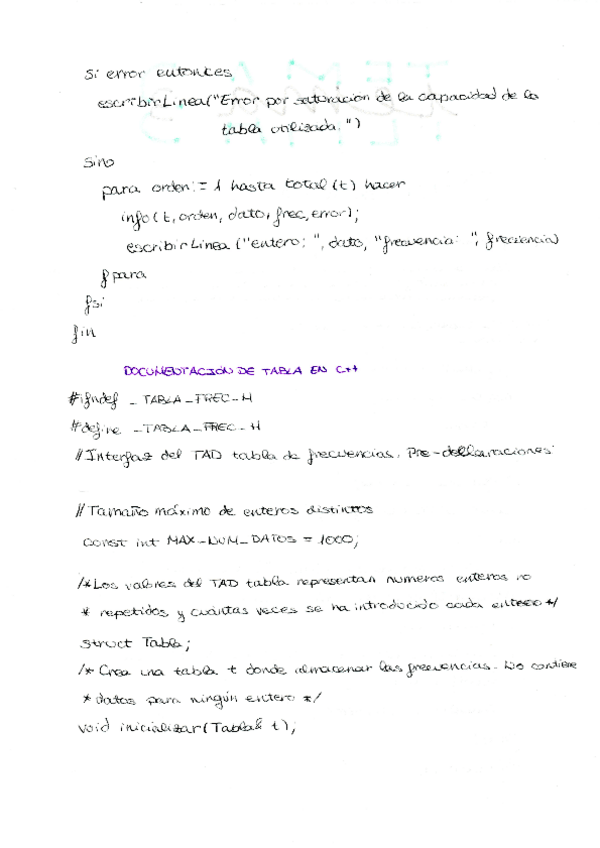 si error entonces
escribirLinea("Error por saturación de la capacidad de la
tabla utilizada.")
sino
para orden:= 1 hasta total(t) hacer
info(t, orden, dato, frec, error);
escribirLinea ("entero: ", dato, "frecuencia: ", frecuencia)
fpara
fsi
fin
DOCUMENTACIÓN DE TABLA EN C++
#ifndef _TABLA_FREC_H
#define _TABLA_FREC_H
//Interfaz del TAD tabla de frecuencias. Pre-declaraciones:
//Tamaño máximo de enteros distintos
const int MAX_NUM_DATOS = 1000;
/*Los valores del TAD tabla representan numeros enteros no
* repetidos y cuántas veces se ha introducido cada entero*/
struct Tabla;
/* Crea una tabla t donde almacenar las frecuencias. No contiene
* datos para ningún entero */
void inicializar(Tabla& t);